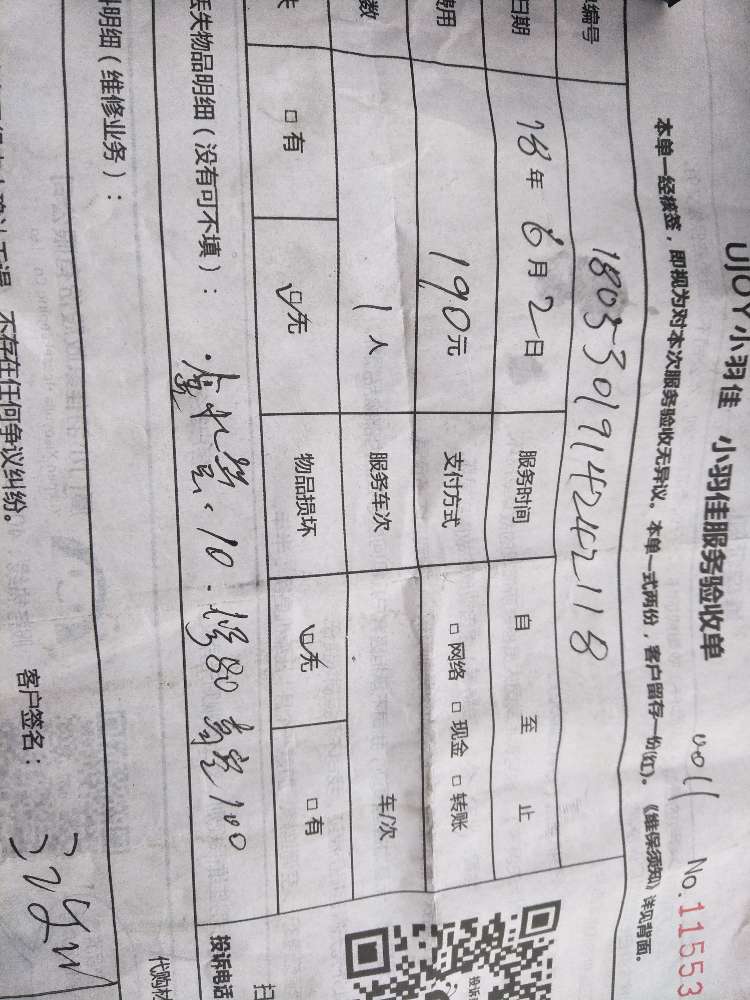 UJOY小羽佳 小羽佳服务验收单
No.11553
本单一经核签，即视为对本次服务验收无异议。本单一式两份，客户留存一份(红)。《维保须知》详见背面。
编号 1805301914242118
日期 18年6月2日 服务时间 自 至 止
费用 190元 支付方式 □网络 □现金 □转账
数 1人 服务车次 车/次
失 □有 ☑无 物品损坏 ☑无 □有
丢失物品明细（没有可不填）：
10 80 100
料明细（维修业务）：
投诉电话
不存在任何争议纠纷。
客户签名：
代购材
扫
投诉